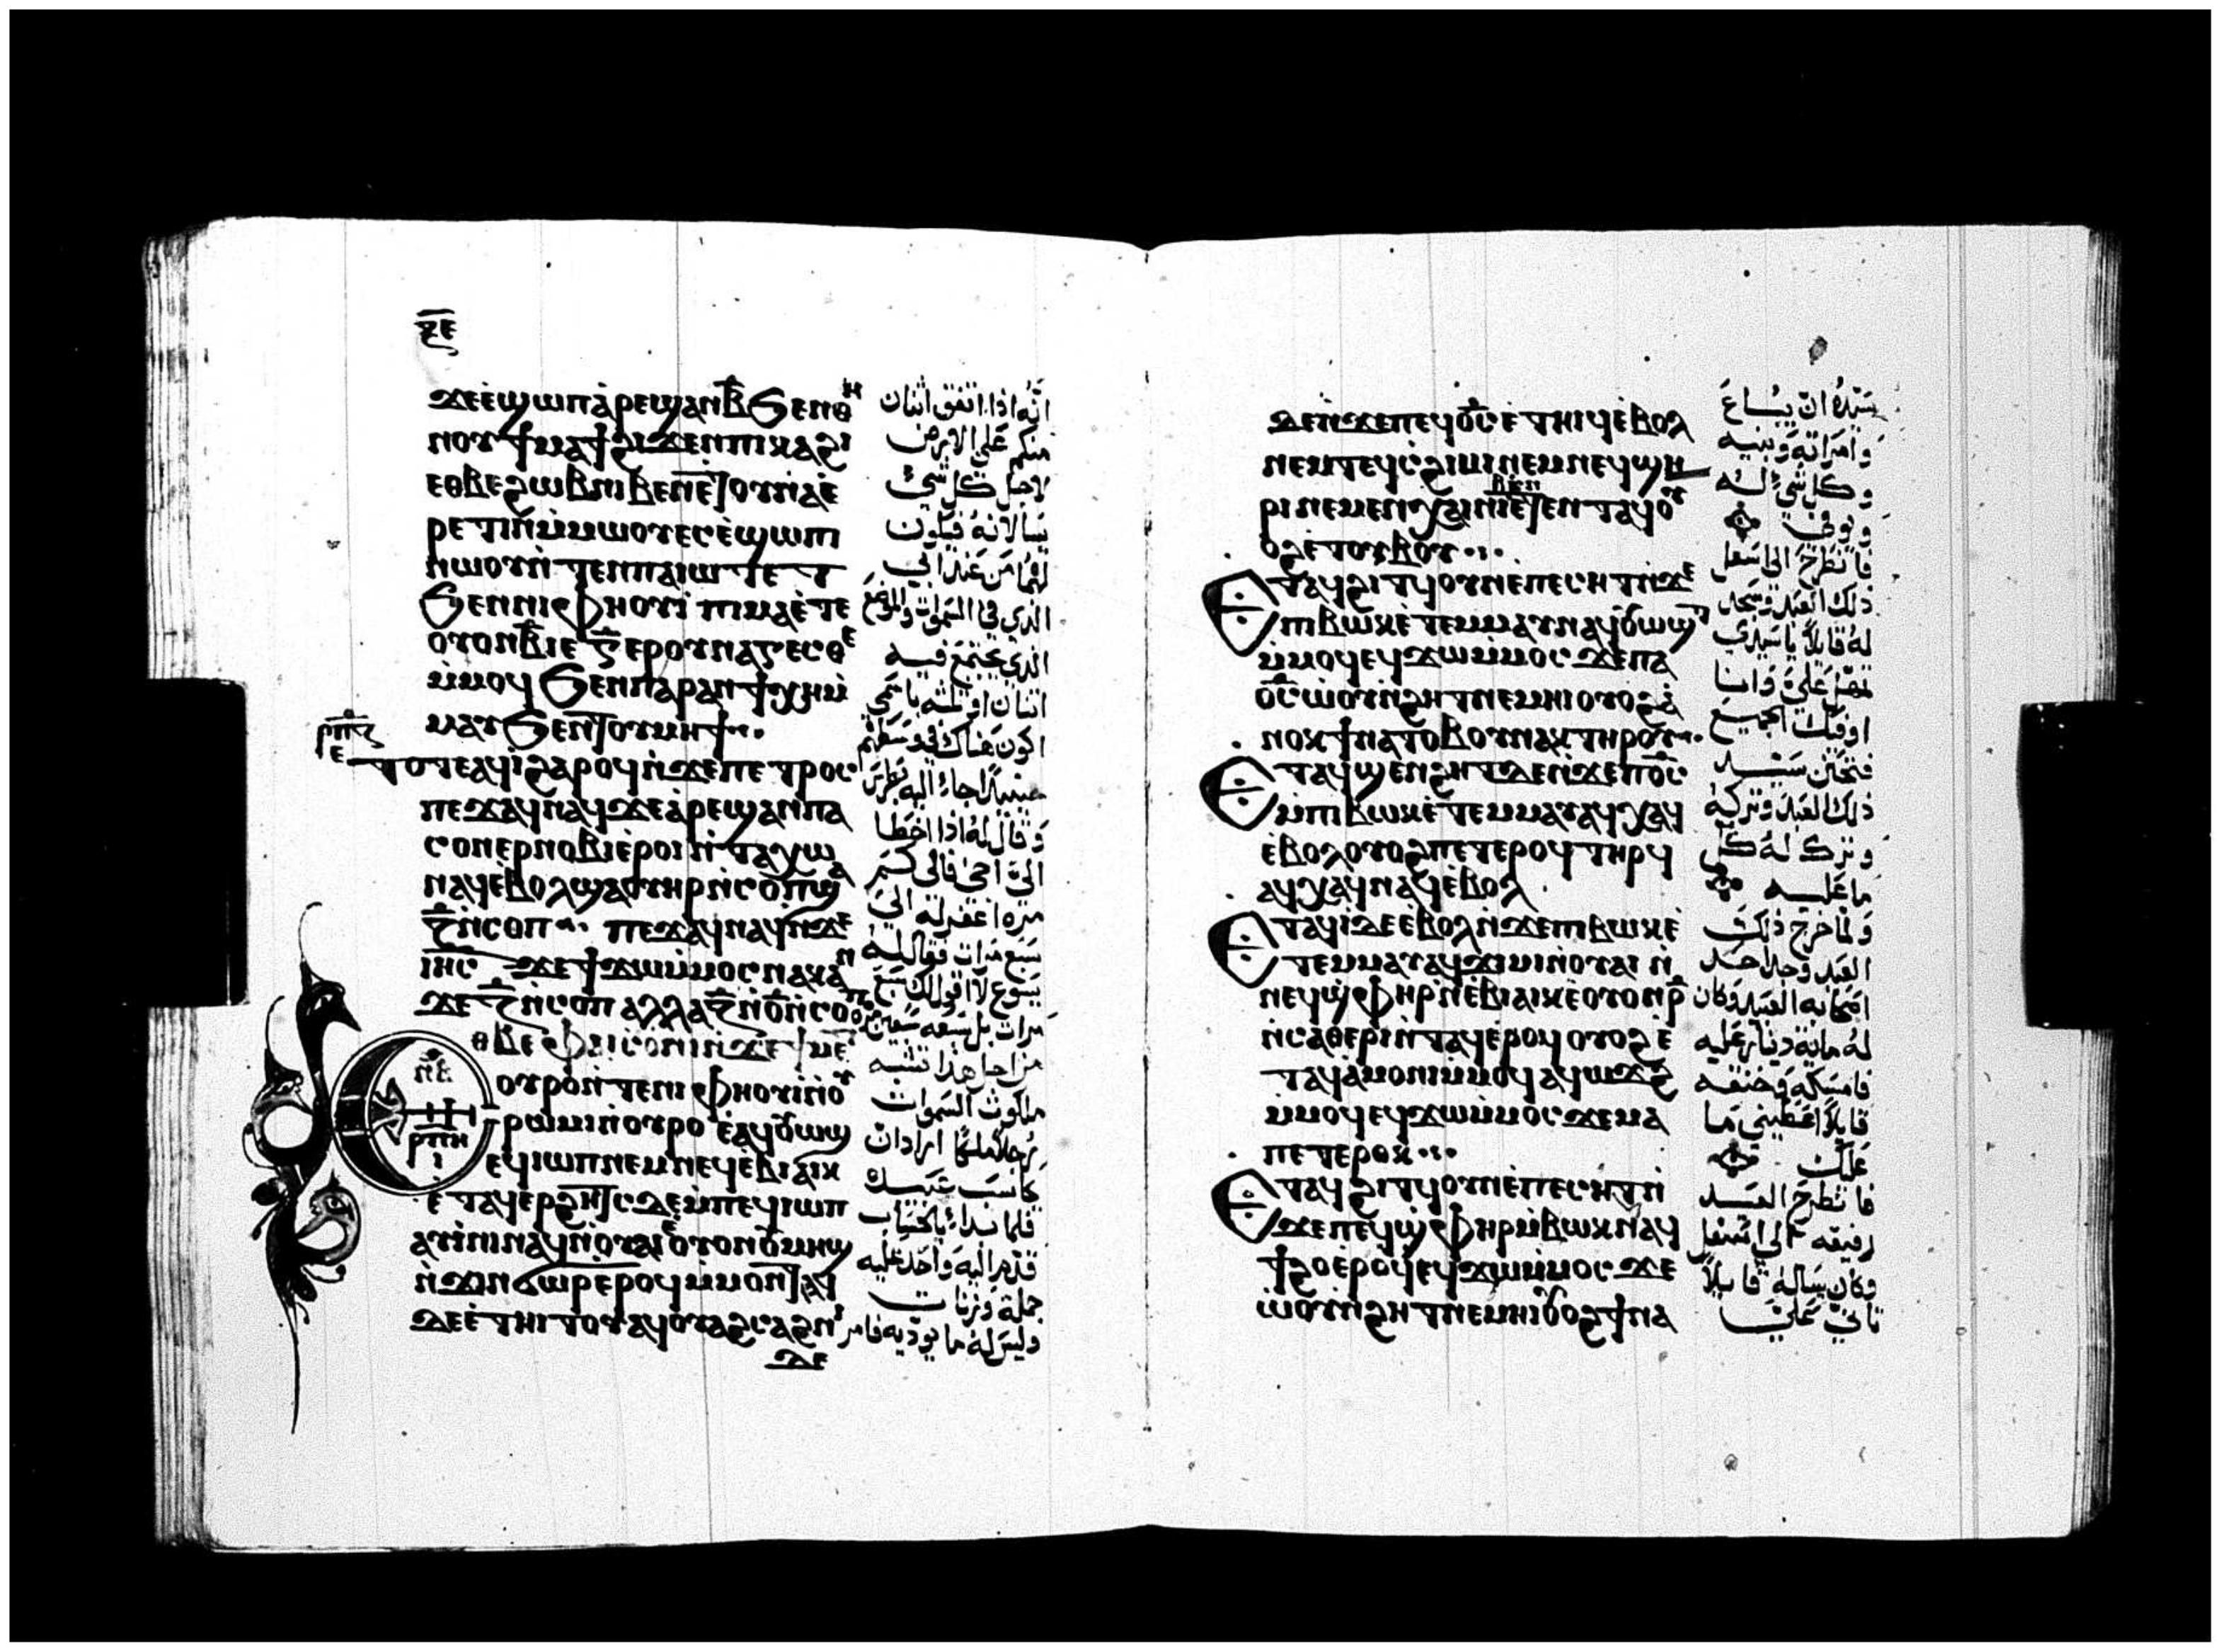 ⲝ̅ⲉ̅
ϫⲉⲉ̀ϣⲱⲡⲁ̀ⲣⲉϣⲁⲛⲃ̅ϧⲉⲛⲑⲏ
ⲛⲟⲩϯⲙⲁϯϩⲓϫⲉⲛⲡⲓⲕⲁϩⲓ
ⲉⲑⲃⲉϩⲱⲃⲛⲓⲃⲉⲛⲉ̀ⲧⲟⲩⲛⲁⲉ̀
ⲣⲉⲧⲓⲛⲙ̀ⲙⲱⲟⲩⲉⲥⲉ̀ϣⲱⲡⲓ
ⲛⲱⲟⲩⲛ̀ⲧⲉⲛⲡⲁⲓⲱⲧⲉⲧ
ϧⲉⲛⲛⲓⲫⲏⲟⲩⲓ̀ ⲡⲓⲙⲁⲉ̀ⲧⲉ
ⲟⲩⲟⲛⲃ̅ⲓⲉ ⲅ̅ⲉⲣⲟⲩⲛⲁⲅⲉⲥⲑⲉ
ⲙ̀ⲙⲟϥ ϧⲉⲛⲡⲁⲣⲁⲛϯⲭⲏⲙ̀
ⲙⲁⲩϧⲉⲛⲧⲟⲩⲙⲏϯ
ⲣ̅ⲡ̅ⲍ̅
ⲉ
ⲧⲟⲧⲉⲁϥⲓ̀ϩⲁⲣⲟϥⲛ̀ϫⲉⲡⲉⲧⲣⲟⲥ
ⲡⲉϫⲁϥⲛⲁϥϫⲉⲁ̀ⲣⲉϣⲁⲛⲡⲁ
ⲥⲟⲛⲉⲣⲛⲟⲃⲓⲉ̀ⲣⲟⲓⲛ̀ⲧⲁⲭⲱ
ⲛⲁϥⲉⲃⲟⲗϣⲁⲟⲩⲏⲣⲛ̀ⲥⲟⲡϣⲁ
ⲍ̅ⲛ̀ⲥⲟⲡ ⲡⲉϫⲁϥⲛⲁϥⲛ̀ϫⲉ
ⲓⲏ̅ⲥ̅ ϫⲉϯϫⲱⲙ̀ⲙⲟⲥⲛⲁⲕⲁⲛ
ϫⲉⲍ̅ⲛ̀ⲥⲟⲡ ⲁⲗⲗⲁⲍ̅ⲛ̀ⲟ̅ⲛ̀ⲥⲟⲡ
ⲉⲑⲃⲉⲫⲁⲓⲥⲟⲛⲓⲛ̀ϫⲉϯⲙⲉⲧ
ⲛ̅ⲃ̅
ⲣ̅ⲡ̅ⲏ̅
ⲓ
ⲟⲩⲣⲟⲛ̀ⲧⲉⲛⲓⲫⲏⲟⲩⲓ̀ⲛ̀ⲟⲩ
ⲣⲱⲙⲓⲛ̀ⲟⲩⲣⲟ ⲉⲁϥⲟⲩⲱϣ
ⲉϥⲓⲱⲡⲛⲉⲙⲛⲉϥⲉ̀ⲃⲓⲁⲓⲕ
ⲉ̀ⲧⲁϥⲉⲣϩⲏⲧⲥϫⲉⲙ̀ⲡⲉϥⲓⲱⲡ
ⲁⲩⲓⲛⲓⲛⲁϥⲛ̀ⲟⲩⲁⲓⲉⲟⲩⲟⲛⲟⲩⲙⲏϣ
ⲛ̀ϫⲓⲛϭⲱⲣⲉⲣⲟϥ ⲙ̀ⲙⲟⲛⲧⲁϥ
ϫⲉⲉ̀ⲧⲏⲓⲧⲟⲩⲁϥⲟⲩⲁϩⲥⲁϩⲛⲓ
ϫⲉ
انه اذا اتفق اثنان
منكم علي الارض
لاجل كل شي
يسالانه فيكون
لهما من عند ابي
الذي في السموات والموضع
الذي يجتمع فيه
اثنان او ثلثه باسمي
اكون هناك في وسطهم
حينيذ جاء اليه بطرس
وقال له اذا اخطا
الي اخي فالي كم
مره اغفر له الي
سبع مرات فقال له
يسوع لا اقول لك سبع
مرات بل سبعه سبعين
من اجل هذا تشبه
ملكوت السموات
رجلا ملكا اراد ان
يحاسب عبيده
فلما بدا بالحساب
قدم اليه واحد عليه
جمله وزنات
وليس له ما يوديه فامر
ϫⲉⲛ̀ϫⲉⲡⲉϥⲟ̅ⲥ̅ ⲉ̀ⲧⲏⲓϥⲉ̀ⲃⲟⲗ
ⲛⲉⲙⲧⲉϥⲥϩⲓⲙⲓⲛⲉⲙⲛⲉϥϣⲏ
ⲣⲓⲛⲉⲙⲉⲛⲭⲁⲓⲛⲓⲃⲉⲛⲉ̀ⲧⲉⲛⲧⲁϥⲟⲩ
ⲟϩⲉ̀ⲧⲟⲩⲃⲟⲩ
Ⲉⲧⲁϥϩⲓⲧϥⲟⲩⲛⲉ̀ⲡⲉⲥⲏⲧⲛ̀ϫⲉ
ⲡⲓⲃⲱⲕⲉ̀ⲧⲉⲙⲙⲁⲩⲛⲁϥⲟⲩⲱϣⲧ
ⲙ̀ⲙⲟϥⲉϥϫⲱⲙ̀ⲙⲟⲥ ϫⲉⲡⲁ
ⲟ̅ⲥ̅ⲱ̀ⲟⲩⲛ̀ϩⲏⲧⲛⲉⲙⲏⲓⲟⲩⲟϩⲁ̀
ⲛⲟⲕϯⲛⲁⲧⲟⲃⲟⲩⲛⲁⲕⲧⲏⲣⲟⲩ
Ⲉⲧⲁϥϣⲉⲛϩⲏⲧϫⲉⲛ̀ϫⲉⲡⲟ̅ⲥ̅
ⲙ̀ⲡⲓⲃⲱⲕⲉ̀ⲧⲉⲙⲙⲁⲩⲁϥⲭⲁϥ
ⲉ̀ⲃⲟⲗⲟⲩⲟϩⲡⲉⲧⲉⲣⲟϥⲧⲏⲣϥ
ⲁϥⲭⲁϥⲛⲁϥⲉ̀ⲃⲟⲗ
Ⲉⲧⲁϥⲓ̀ϫⲉⲉ̀ⲃⲟⲗⲛ̀ϫⲉⲡⲓⲃⲱⲕⲉ̀
ⲧⲉⲙⲙⲁⲩⲁϥϫⲓⲙⲓⲛ̀ⲟⲩⲁⲓ ⲛ̀
ⲛⲉϥϣ̀ⲫⲏⲣⲛ̀ⲉ̀ⲃⲓⲁⲓⲕⲉ̀ⲟⲩⲟⲛⲣ̅
ⲛ̀ⲥⲁⲑⲉⲣⲓⲛ̀ⲧⲁϥⲉ̀ⲣⲟϥ ⲟⲩⲟϩ ⲉ̀
ⲧⲁϥⲁ̀ⲙⲟⲛⲓⲙ̀ⲙⲟϥ ⲁϥⲱϫϩ
ⲙ̀ⲙⲟϥⲉϥϫⲱⲙ̀ⲙⲟⲥ ϫⲉⲙⲁ
ⲡⲉⲧⲉⲣⲟⲕ
Ⲉⲧⲁϥϩⲓⲧϥⲟⲩⲛⲉ̀ⲡⲉⲥⲏⲧⲛ̀
ϫⲉⲡⲉϥϣ̀ⲫⲏⲣⲙ̀ⲃⲱⲕⲛⲁϥ
ϯϩⲟⲉ̀ⲣⲟϥⲉϥϫⲱⲙ̀ⲙⲟⲥ ϫⲉ
ⲱ̀ⲟⲩⲛ̀ϩⲏⲧⲛⲉⲙⲏⲓⲟⲩⲟϩϯⲛⲁ
سيده ان يباع
وامراته وبنيه
وكل شي له
ويوفي
فانطرح الي اسفل
ذلك العبد وسجد
له قايلا يا سيدي
تمهل علي وانا
اوفيك الجميع
فتحنن سيد
ذلك العبد وتركه
وترك له كل
ما عليه
ولما خرج ذلك
العبد وجد احد
اصحابه العبيد وكان
له مايه دينار عليه
فامسكه وخنقه
قايلا اعطيني ما
عليك
فانطرح العبد
رفيقه الي اسفل
وكان يساله قايلا
تاني علي